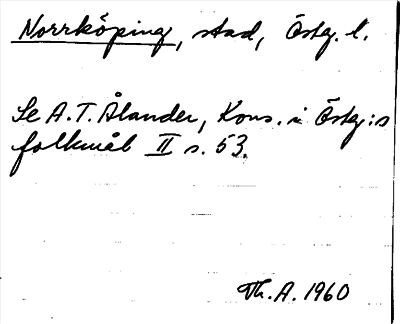 Norrköping, stad, Östg. l.
Se A.T. Ålander, Kons. i Östg:s
folkmål II s. 53.
Th. A. 1960